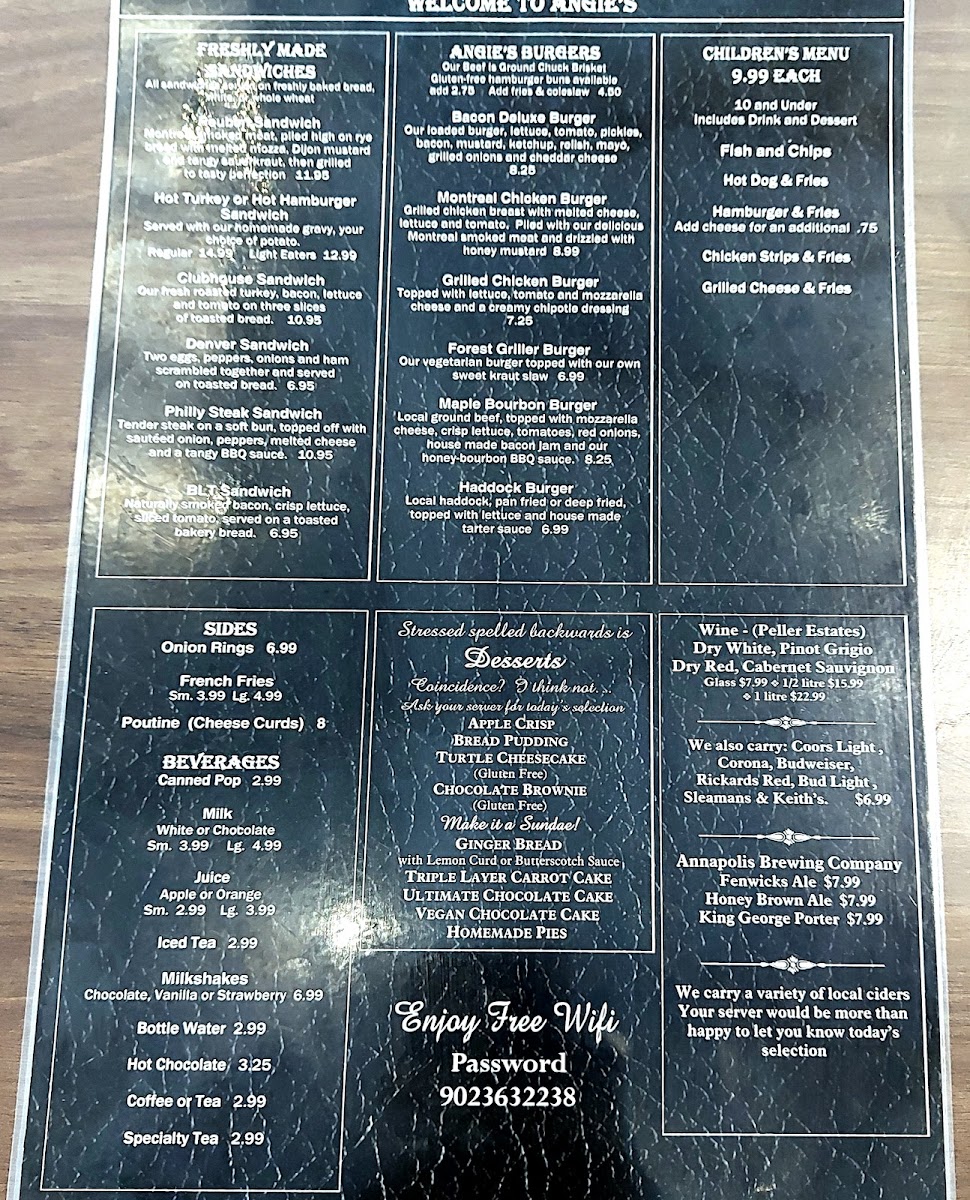 WELCOME TO ANGIE'S
FRESHLY MADE
SANDWICHES
All sandwiches served on freshly baked bread,
white, or whole wheat
Reuben Sandwich
Montreal smoked meat, piled high on rye
bread with melted mozza, Dijon mustard
and tangy sauerkraut, then grilled
to tasty perfection 11.95
Hot Turkey or Hot Hamburger
Sandwich
Served with our homemade gravy, your
choice of potato.
Regular 14.99 Light Eaters 12.99
Clubhouse Sandwich
Our fresh roasted turkey, bacon, lettuce
and tomato on three slices
of toasted bread. 10.95
Denver Sandwich
Two eggs, peppers, onions and ham
scrambled together and served
on toasted bread. 6.95
Philly Steak Sandwich
Tender steak on a soft bun, topped off with
sautéed onion, peppers, melted cheese
and a tangy BBQ sauce. 10.95
BLT Sandwich
Naturally smoked bacon, crisp lettuce,
sliced tomato, served on a toasted
bakery bread. 6.95
ANGIE'S BURGERS
Our Beef is Ground Chuck Brisket
Gluten-free hamburger buns available
add 2.75 Add fries & coleslaw 4.50
Bacon Deluxe Burger
Our loaded burger, lettuce, tomato, pickles,
bacon, mustard, ketchup, relish, mayo,
grilled onions and cheddar cheese
8.25
Montreal Chicken Burger
Grilled chicken breast with melted cheese,
lettuce and tomato. Piled with our delicious
Montreal smoked meat and drizzled with
honey mustard 8.99
Grilled Chicken Burger
Topped with lettuce, tomato and mozzarella
cheese and a creamy chipotle dressing
7.25
Forest Griller Burger
Our vegetarian burger topped with our own
sweet kraut slaw 6.99
Maple Bourbon Burger
Local ground beef, topped with mozzarella
cheese, crisp lettuce, tomatoes, red onions,
house made bacon jam and our
honey-bourbon BBQ sauce. 8.25
Haddock Burger
Local haddock, pan fried or deep fried,
topped with lettuce and house made
tarter sauce 6.99
CHILDREN'S MENU
9.99 EACH
10 and Under
Includes Drink and Dessert
Fish and Chips
Hot Dog & Fries
Hamburger & Fries
Add cheese for an additional .75
Chicken Strips & Fries
Grilled Cheese & Fries
SIDES
Onion Rings 6.99
French Fries
Sm. 3.99 Lg. 4.99
Poutine (Cheese Curds) 8
BEVERAGES
Canned Pop 2.99
Milk
White or Chocolate
Sm. 3.99 Lg. 4.99
Juice
Apple or Orange
Sm. 2.99 Lg. 3.99
Iced Tea 2.99
Milkshakes
Chocolate, Vanilla or Strawberry 6.99
Bottle Water 2.99
Hot Chocolate 3.25
Coffee or Tea 2.99
Specialty Tea 2.99
Stressed spelled backwards is
Desserts
Coincidence? I think not...
Ask your server for today's selection
APPLE CRISP
BREAD PUDDING
TURTLE CHEESECAKE
(Gluten Free)
CHOCOLATE BROWNIE
(Gluten Free)
Make it a Sundae!
GINGER BREAD
with Lemon Curd or Butterscotch Sauce
TRIPLE LAYER CARROT CAKE
ULTIMATE CHOCOLATE CAKE
VEGAN CHOCOLATE CAKE
HOMEMADE PIES
Enjoy Free Wifi
Password
9023632238
Wine - (Peller Estates)
Dry White, Pinot Grigio
Dry Red, Cabernet Sauvignon
Glass $7.99 ❖ 1/2 litre $15.99
❖ 1 litre $22.99
We also carry: Coors Light ,
Corona, Budweiser,
Rickards Red, Bud Light ,
Sleamans & Keith's. $6.99
Annapolis Brewing Company
Fenwicks Ale $7.99
Honey Brown Ale $7.99
King George Porter $7.99
We carry a variety of local ciders
Your server would be more than
happy to let you know today's
selection